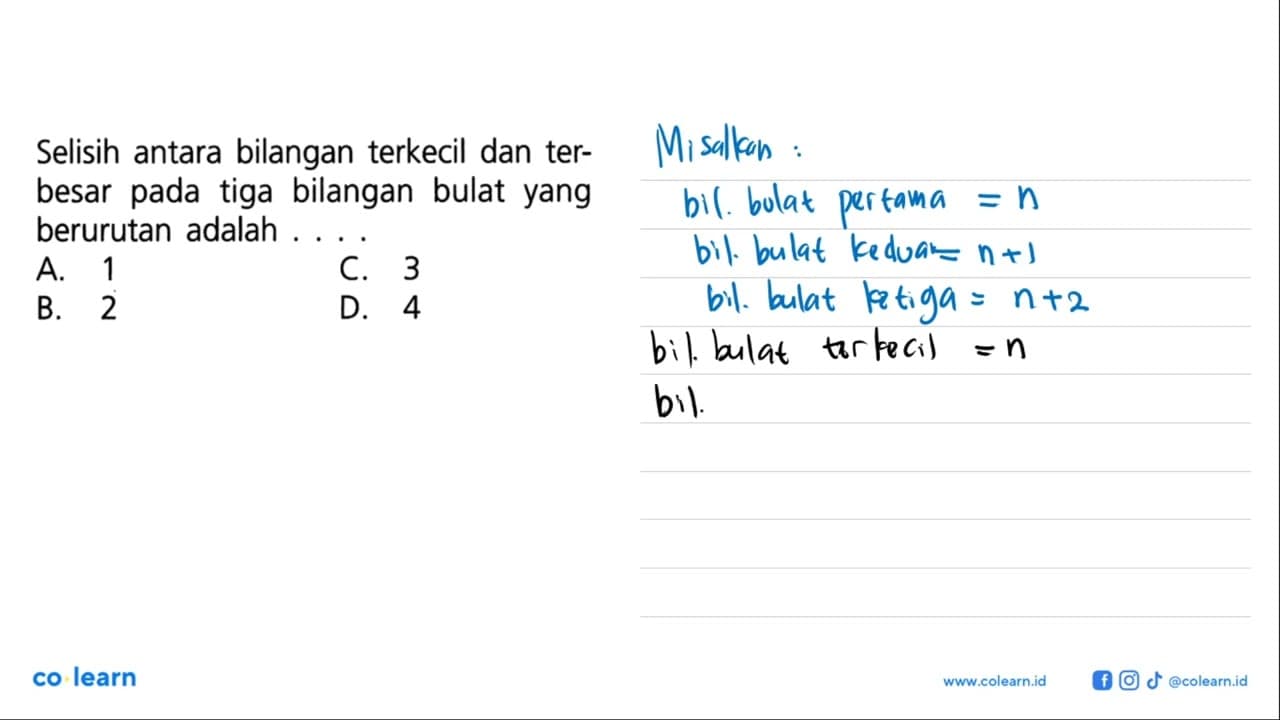 Selisih antara bilangan terkecil dan ter-
besar pada tiga bilangan bulat yang
berurutan adalah . . . .
A. 1 C. 3
B. 2 D. 4
Misalkan :
bil. bulat pertama = n
bil. bulat kedua = n+1
bil. bulat ketiga = n+2
bil. bulat terkecil = n
bil.
co learn
www.colearn.id @colearn.id